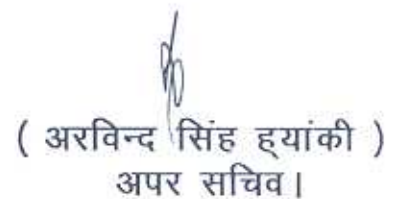 ( अरविन्द सिंह ह्यांकी )
अपर सचिव।